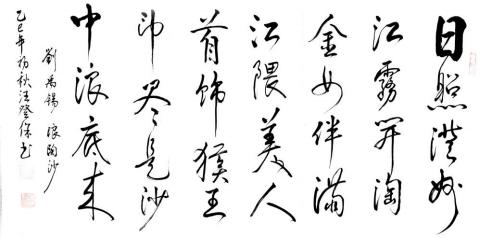 日照澄洲
江霧開淘
金女伴滿
江隈美人
首饰侯王
印尽是沙
中浪底来
劉禹錫 浪淘沙
乙巳年初秋汪登保书